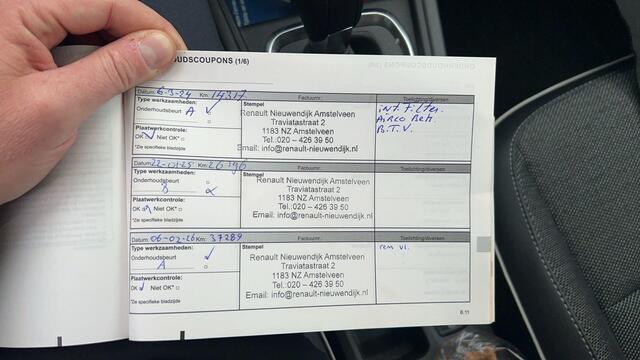 OUDSCOUPONS (1/6)
Datum: 6-3-24 Km: 14317 Factuurnr.: Toelichting/diversen
Type werkzaamheden:
Onderhoudsbeurt
A
Plaatwerkcontrole:
OK Niet OK*
*Zie specifieke bladzijde
Stempel
Renault Nieuwendijk Amstelveen
Traviatastraat 2
1183 NZ Amstelveen
Tel.:020 – 426 39 50
Email: info@renault-nieuwendijk.nl
int. filter.
Airco Beh.
B.T.V.
Datum: 22-01-25 Km: 26196 Factuurnr.: Toelichting/diversen
Type werkzaamheden:
Onderhoudsbeurt
B
Plaatwerkcontrole:
OK Niet OK*
*Zie specifieke bladzijde
Stempel
Renault Nieuwendijk Amstelveen
Traviatastraat 2
1183 NZ Amstelveen
Tel.:020 – 426 39 50
Email: info@renault-nieuwendijk.nl
Datum: 06-02-26 Km: 37289 Factuurnr.: Toelichting/diversen
Type werkzaamheden:
Onderhoudsbeurt
A
Plaatwerkcontrole:
OK Niet OK*
*Zie specifieke bladzijde
Stempel
Renault Nieuwendijk Amstelveen
Traviatastraat 2
1183 NZ Amstelveen
Tel.:020 – 426 39 50
Email: info@renault-nieuwendijk.nl
rem vl.
6.11